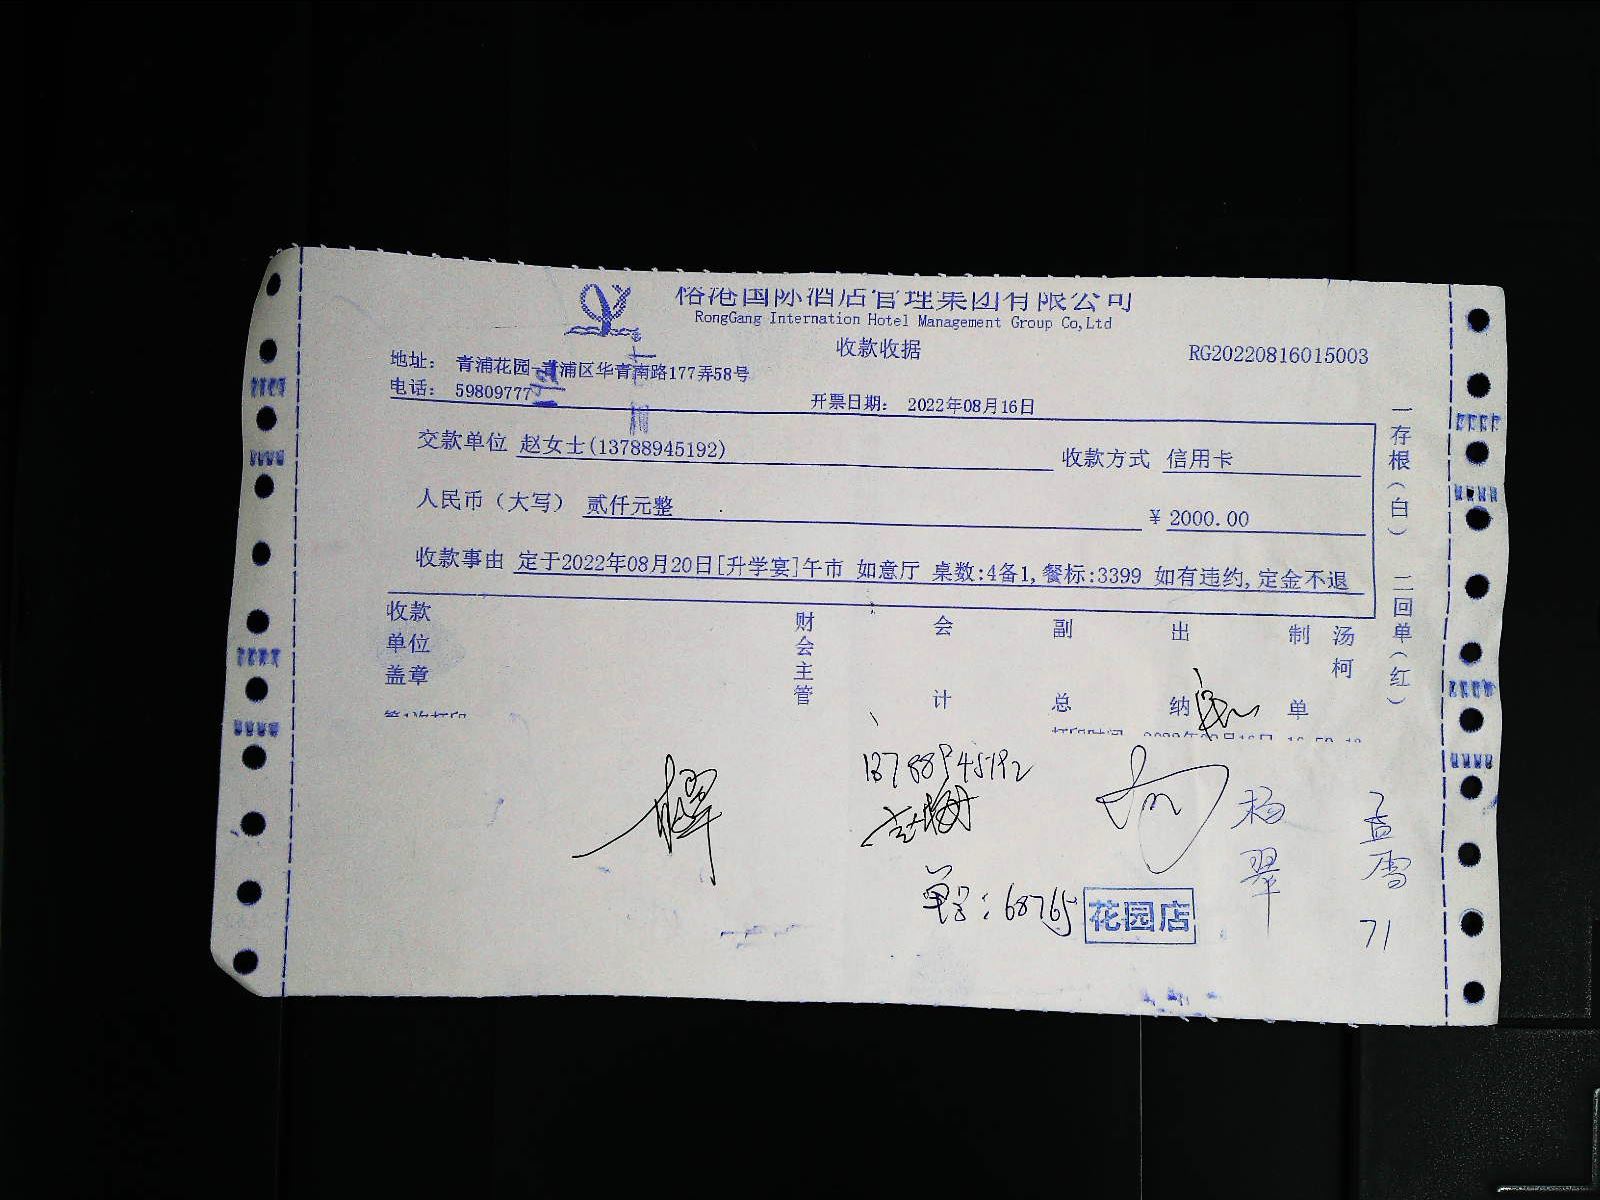 榕港国际酒店管理集团有限公司
RongGang Internation Hotel Management Group Co,Ltd
收款收据
RG20220816015003
地址: 青浦花园-青浦区华青南路177弄58号
电话: 59809777
开票日期: 2022年08月16日
交款单位 赵女士(13788945192) 收款方式 信用卡
人民币(大写) 贰仟元整 ¥ 2000.00
收款事由 定于2022年08月20日[升学宴]午市 如意厅 桌数:4备1,餐标:3399 如有违约,定金不退
收款单位盖章 财会主管 会计 副总 出纳 制单 汤柯
一存根(白) 二回单(红)
13788945192
单号:68765
花园店
杨翠
孟雪
71